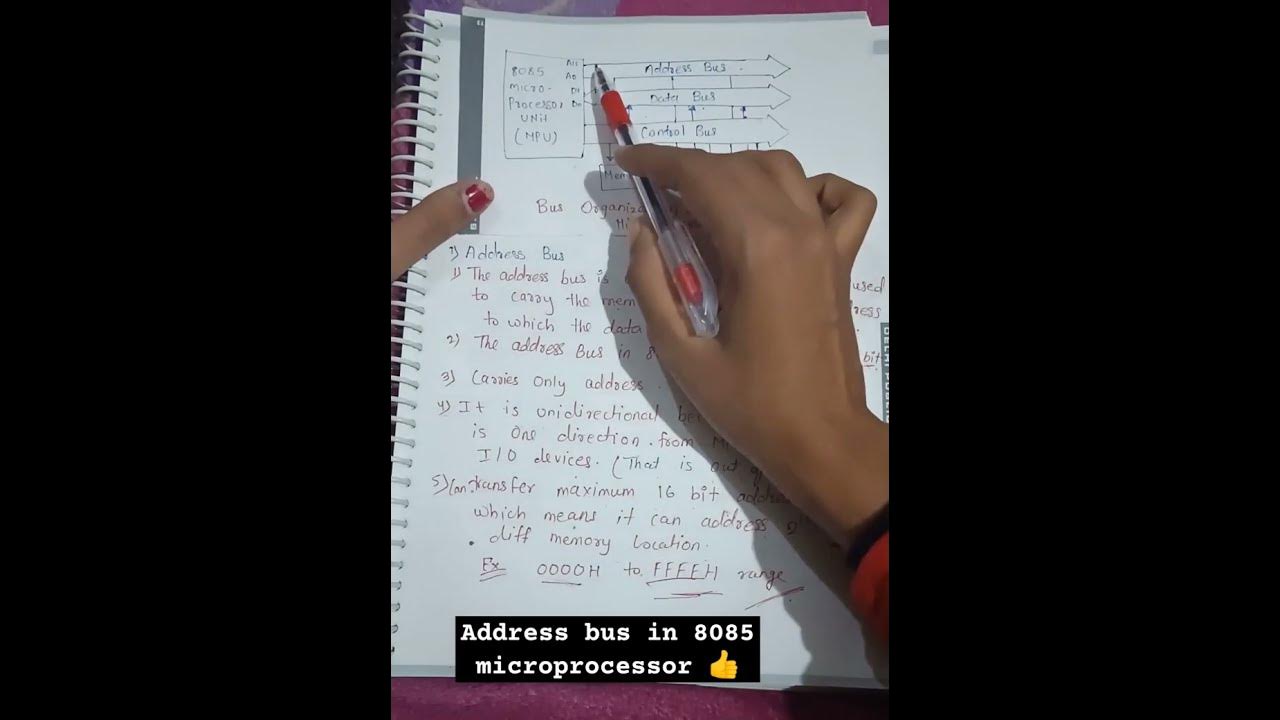 8085
Micro-
Processor
Unit
(MPU)
A15
A0
D7
D0
Address Bus
Data Bus
Control Bus
Mem
Bus Organiza
Mi
1) Address Bus
1) The address bus is used
to carry the mem ress
to which the data
2) The address Bus in 8 bit
3) Carries only address.
4) It is unidirectional be
is one direction. from M
I/O devices. (That is out
5) Can transfer maximum 16 bit addre
which means it can address 2
diff memory location.
Ex 0000H to FFFFH range
Address bus in 8085
microprocessor 👍